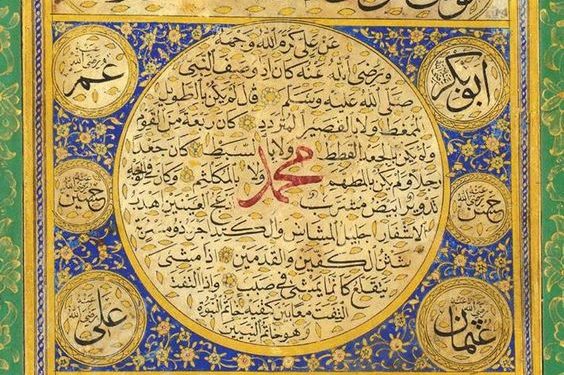 ابو بكر
رضي الله عنه
عمر
رضي الله عنه
عن علي كرم الله وجهه
ورضي الله عنه كان اذا وصف النبي
صلى الله عليه وسلم قال لم يكن بالطويل
الممغط ولا بالقصير المتردد وكان ربعة من القوم
ولم يكن بالجعد القطط ولا بالسبط كان جعدا
رجلا ولم يكن بالمطهم ولا بالمكلثم وكان في الوجه
محمد
تدوير ابيض مشرب ادعج العينين اهدب
الاشفار جليل المشاش والكتد اجرد ذو مسربة
شثن الكفين والقدمين اذا مشى
يتقلع كانما يمشي في صبب واذا التفت
التفت معا بين كتفيه خاتم النبوة
وهو خاتم النبيين
حسن
رضي الله عنه
حسين
رضي الله عنه
عثمان
رضي الله عنه
علي
رضي الله عنه